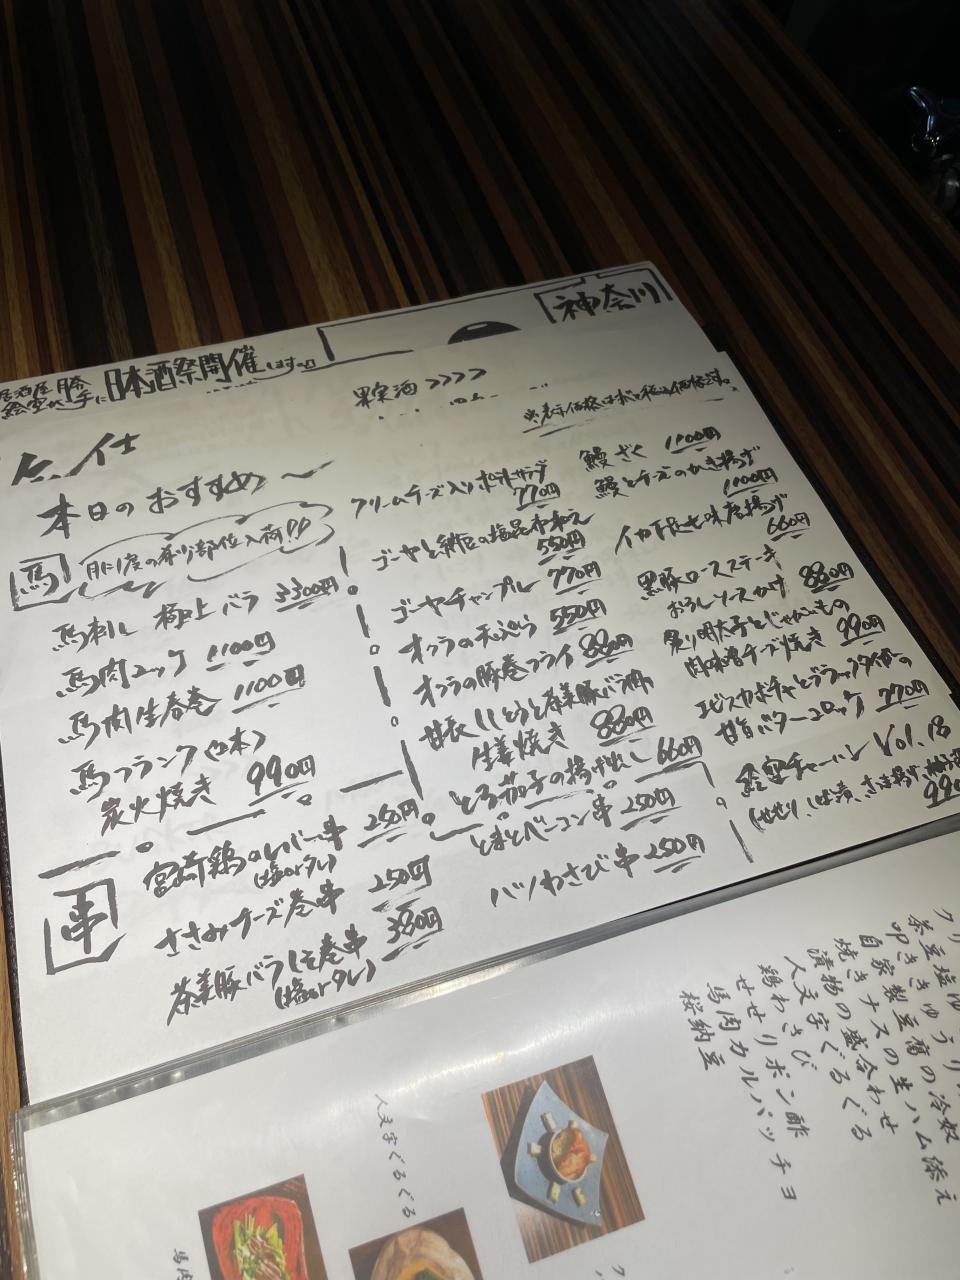 神奈川
居酒屋 勝手に日本酒祭開催します
果実酒 >>>>
本日のおすすめ
馬
月に1度の希少部位入荷!!
馬刺し 極上バラ 3300円
馬肉ユッケ 1100円
馬肉生春巻 1100円
馬フランク(2本)
炭火焼き 990円
クリームチーズ入りポテトサラダ
770円
ゴーヤと納豆の塩昆布和え
550円
ゴーヤチャンプル 770円
オクラの天ぷら 550円
オクラの豚巻フライ 880円
甘長ししとうと茶美豚バラ肉
生姜焼き 880円
とろ茄子の揚げ出し 660円
鰻ざく 1100円
鰻とチーズのかき揚げ
1100円
イカ下足七味唐揚げ
660円
黒豚ロースステーキ
おろしソースかけ 880円
炙り明太子とじゃがいもの
肉味噌チーズ焼き 990円
エビスカボチャとブラックタイガーの
甘旨バターコロッケ 770円
チャーハン Vol.18
990
串
宮崎鶏のレバー串 250円
(塩orタレ)
ささみチーズ巻串 250円
茶美豚バラしそ巻串 380円
(塩orタレ)
とまとベーコン串 250円
ハツわさび串 250円
クリ
茶豆塩ゆ
叩ききゅうり
自家製豆腐の冷奴
焼きナスの生ハム添え
漬物の盛合わせ
人文字ぐるぐる
鶏わさび
せせりポン酢
馬肉カルパッチョ
桜納豆
人文字ぐるぐる
馬肉